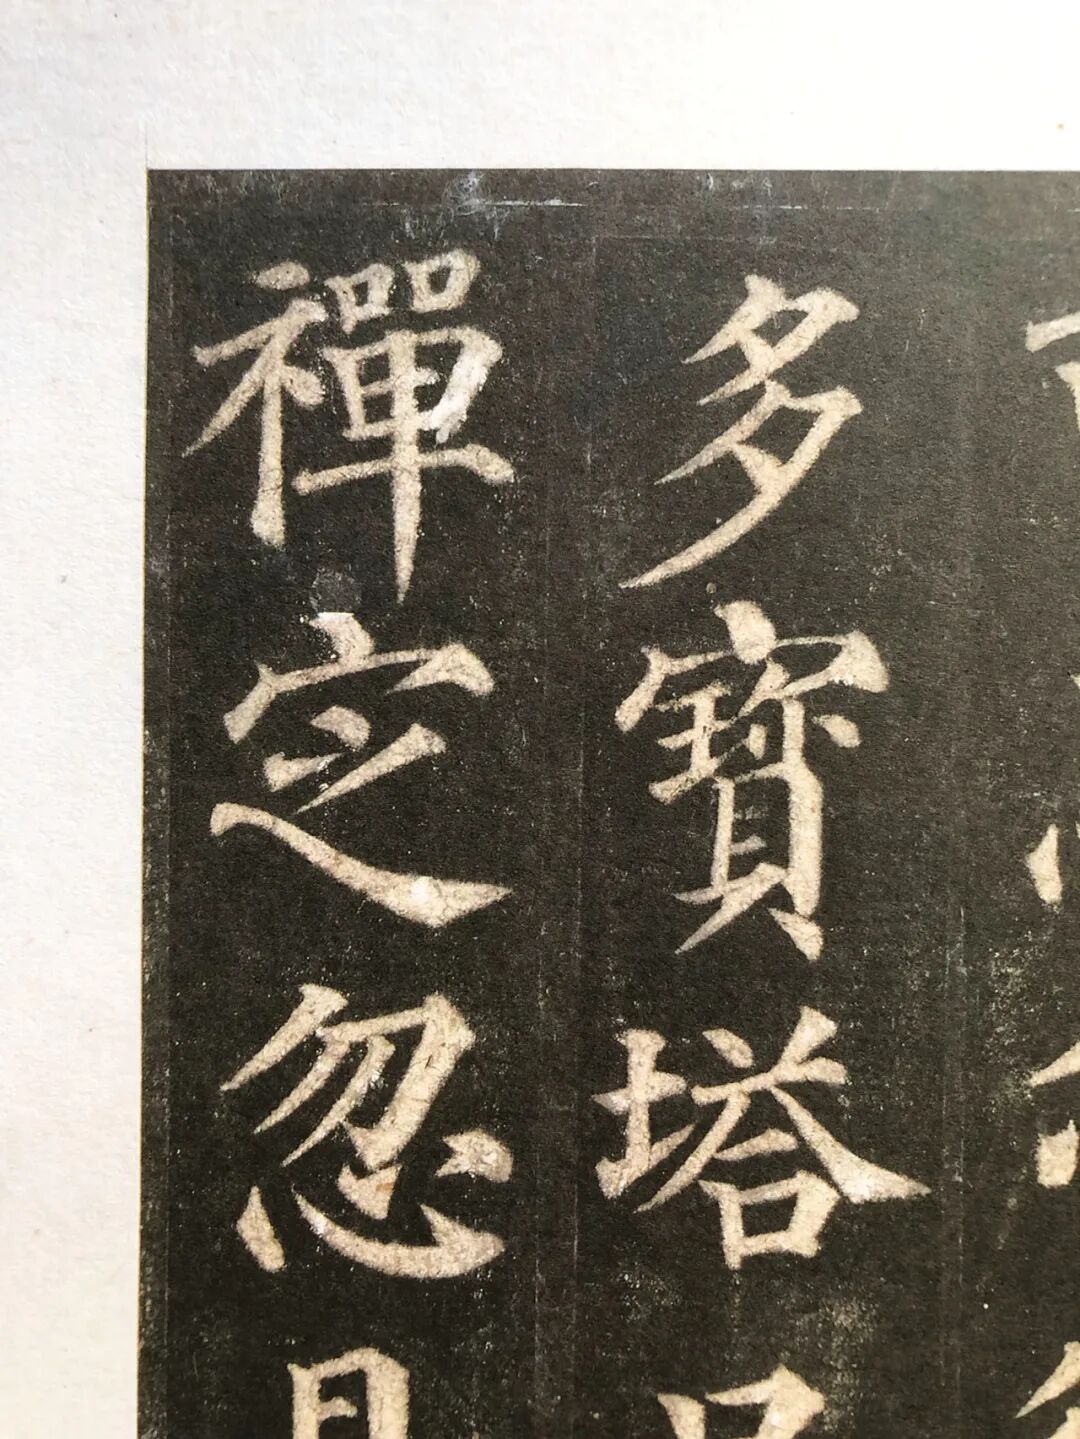 多寶塔
禪定忽